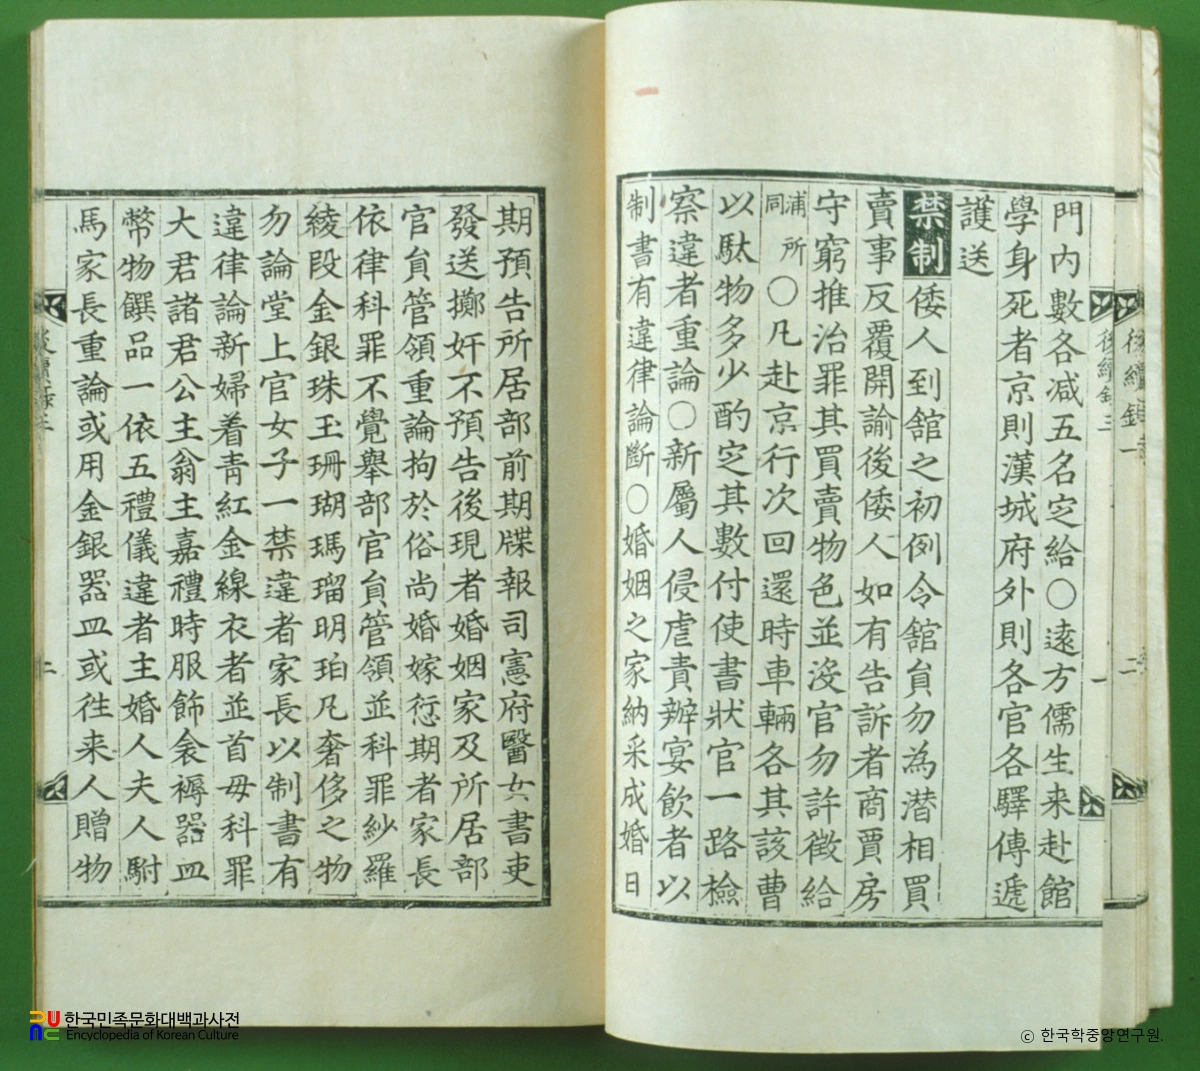 門内數各减五名定給○遠方儒生来赴館
學身死者京則漢城府外則各官各驛傳遞
護送
禁制 倭人到舘之初例令舘貟勿為潜相買
賣事反覆開諭後倭人如有告訴者商賈房
守窮推治罪其買賣物色並沒官勿許徵給
浦所同○凡赴京行次回還時車輛各其該曹
以駄物多少酌定其數付使書狀官一路檢
察違者重論○新屬人侵虐責辦宴飲者以
制書有違律論斷○婚姻之家納采成婚日
期預告所居部前期牒報司憲府醫女書吏
發送擲奸不預告後現者婚姻家及所居部
官貟管領重論拘於俗尚婚嫁愆期者家長
依律科罪不覺舉部官貟管領並科罪紗羅
綾段金銀珠玉珊瑚瑪瑠明珀凡奢侈之物
勿論堂上官女子一禁違者家長以制書有
違律論新婦着青紅金線衣者並首母科罪
大君諸君公主翁主嘉禮時服飾衾褥器皿
幣物饌品一依五禮儀違者主婚人夫人駙
馬家長重論或用金銀器皿或徃来人贈物
後續錄三
二
後續錄三
一
한국민족문화대백과사전
Encyclopedia of Korean Culture
ⓒ 한국학중앙연구원.